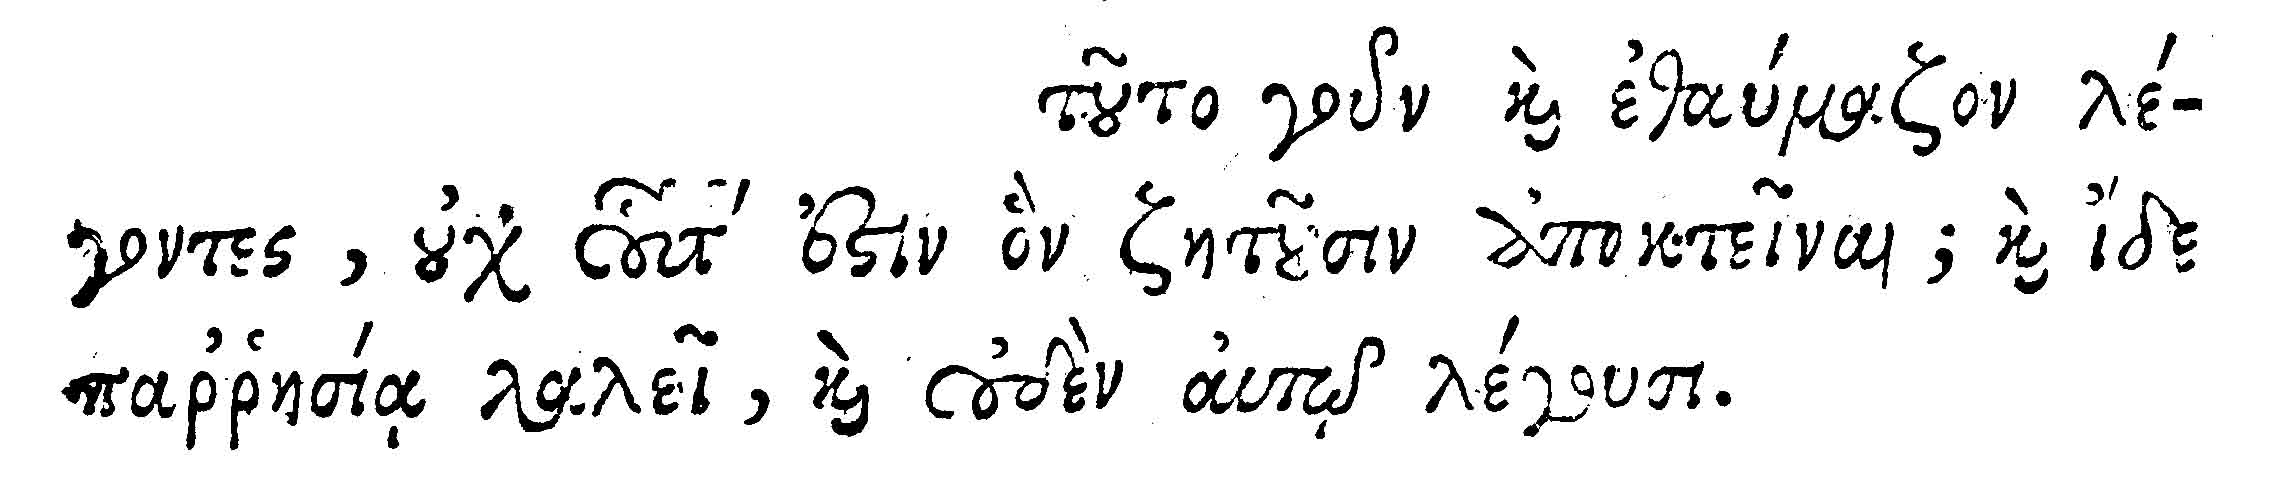 τοῦτο γοῦν καὶ ἐθαύμαζον λέ-
γοντες, οὐχ οὗτός ἐστιν ὃν ζητοῦσιν ἀποκτεῖναι; καὶ ἴδε
παῤῥησίᾳ λαλεῖ, καὶ οὐδὲν αὐτῷ λέγουσι.